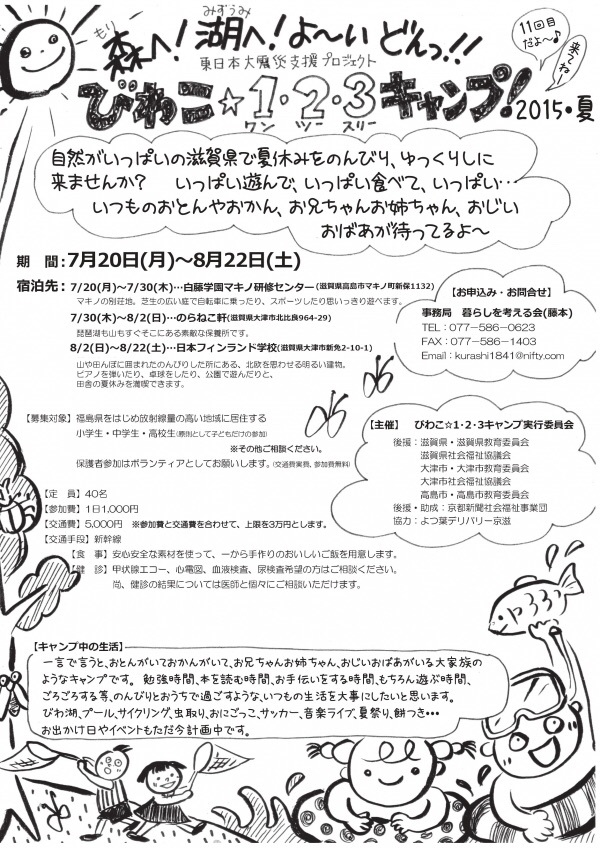 もり みずうみ
森へ！湖へ！よ〜いどんっ!!
11回目だよ〜♪
来てねー！
東日本大震災支援プロジェクト
びわこ☆1・2・3キャンプ！2015・夏
ワン ツー スリー
自然がいっぱいの滋賀県で夏休みをのんびり、ゆっくりしに
来ませんか？ いっぱい遊んで、いっぱい食べて、いっぱい…
いつものおとんやおかん、お兄ちゃんお姉ちゃん、おじい
おばあが待ってるよ〜
期 間：7月20日(月)〜8月22日(土)
宿泊先：7/20(月)〜7/30(木)…白藤学園マキノ研修センター(滋賀県高島市マキノ町新保1132)
マキノの別荘地。芝生の広い庭で自転車に乗ったり、スポーツしたり思いっきり遊べます。
7/30(木)〜8/2(日)…のらねこ軒(滋賀県大津市北比良964-29)
琵琶湖も山もすぐそこにある素敵な保養所です。
8/2(日)〜8/22(土)…日本フィンランド学校(滋賀県大津市新免2-10-1)
山や田んぼに囲まれたのんびりした所にある、北欧を思わせる明るい建物。
ピアノを弾いたり、卓球をしたり、公園で遊んだりと、
田舎の夏休みを満喫できます。
【お申込み・お問合せ】
事務局 暮らしを考える会(藤本)
TEL：077－586－0623
FAX：077－586－1403
Email：kurashi1841@nifty.com
【募集対象】福島県をはじめ放射線量の高い地域に居住する
小学生・中学生・高校生(原則として子どもだけの参加)
※その他ご相談ください。
保護者参加はボランティアとしてお願いします。(交通費実費、参加費無料)
【主催】 びわこ☆1・2・3キャンプ実行委員会
後援：滋賀県・滋賀県教育委員会
滋賀県社会福祉協議会
大津市・大津市教育委員会
大津市社会福祉協議会
高島市・高島市教育委員会
後援・助成：京都新聞社会福祉事業団
協力：よつ葉デリバリー京滋
【定 員】40名
【参加費】1日1,000円
【交通費】5,000円 ※参加費と交通費を合わせて、上限を3万円とします。
【交通手段】新幹線
【食 事】安心安全な素材を使って、一から手作りのおいしいご飯を用意します。
【健 診】甲状腺エコー、心電図、血液検査、尿検査希望の方はご相談ください。
尚、健診の結果については医師と個々にご相談いただけます。
【キャンプ中の生活】
一言で言うと、おとんがいておかんがいて、お兄ちゃんお姉ちゃん、おじいおばあがいる大家族の
ようなキャンプです。 勉強時間、本を読む時間、お手伝いをする時間、もちろん遊ぶ時間、
ごろごろする等、のんびりとおうちで過ごすような、いつもの生活を大事にしたいと思います。
びわ湖、プール、サイクリング、虫取り、おにごっこ、サッカー、音楽ライブ、夏祭り、餅つき…
お出かけ日やイベントもただ今計画中です。